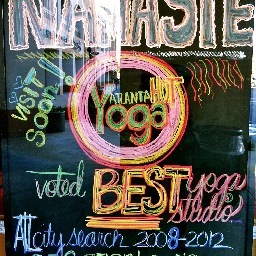 NAMASTE
VISIT
Soon!
ATLANTA HOT
Yoga
voted BEST yoga
studio
Atl city search 2008-2012